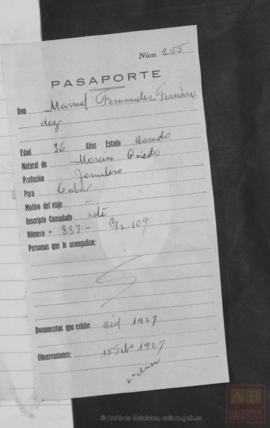 Núm 255
PASAPORTE
Don Manuel Fernandez Fernán
dez
Edad 36 Años Estado Casado
Natural de Morcin Oviedo
Profesión Jornalero
Para Cuba
Motivo del viaje -
Inscripto Consulado este
Número 887-
Personas que le acompañan:
Documentos que exhibe 1927
Observaciones: 15 Feb 1927